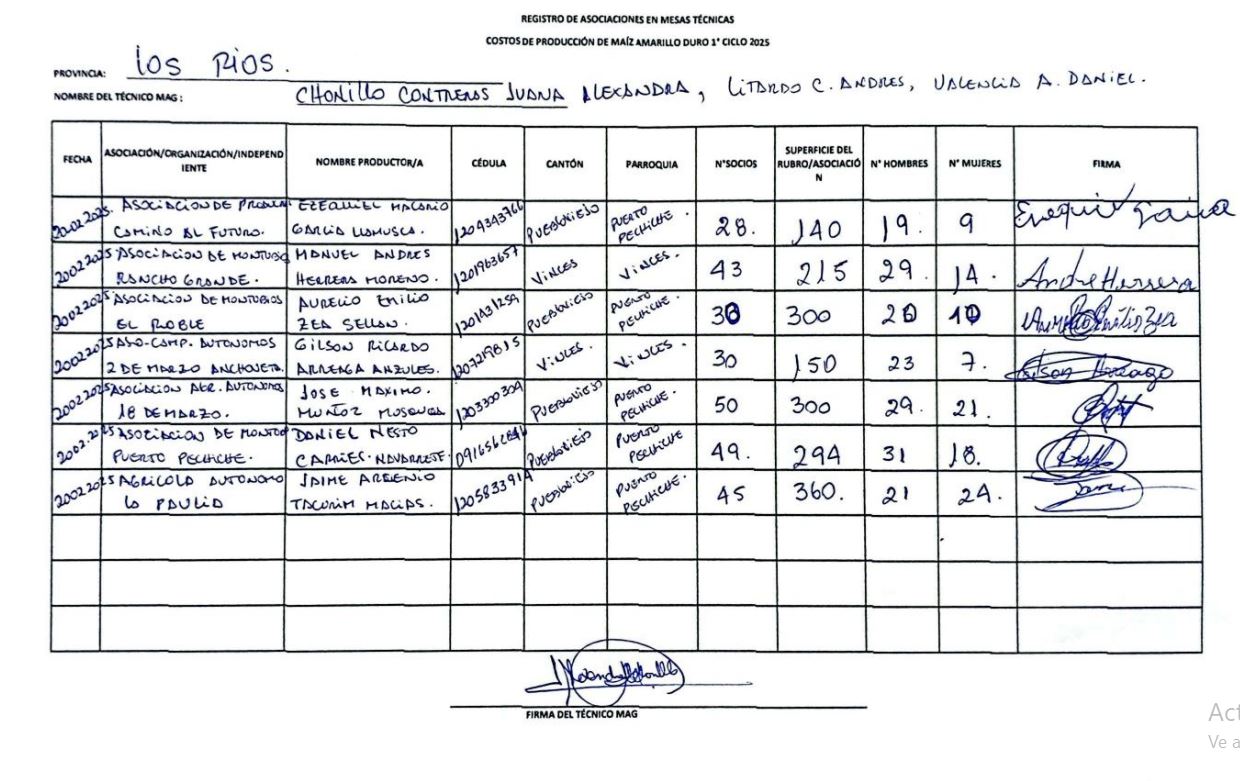 REGISTRO DE ASOCIACIONES EN MESAS TÉCNICAS
COSTOS DE PRODUCCIÓN DE MAÍZ AMARILLO DURO 1° CICLO 2025
PROVINCIA: LOS RIOS.
NOMBRE DEL TÉCNICO MAG : CHONILLO CONTRERAS JUANA ALEXANDRA, LITARDO C. ANDRES, VALENCIA A. DANIEL.
FECHA ASOCIACIÓN/ORGANIZACIÓN/INDEPENDIENTE NOMBRE PRODUCTOR/A CÉDULA CANTÓN PARROQUIA N°SOCIOS SUPERFICIE DEL RUBRO/ASOCIACIÓN N° HOMBRES N° MUJERES FIRMA
20.02.2025. ASOCIACION DE CAMINO AL FUTURO. EZEQUIEL MACARIO GARCIA LLAMUSCA. 1204343766 PUEBLOVIEJO PUERTO PECHICHE. 28. 140 19. 9
20022025 ASOCIACION DE RANCHO GRANDE. MANUEL ANDRES HERRERA MORENO. 1201963657 VINCES VINCES. 43 215 29. 14. Andre Herrera
20022025 ASOCIACION DE MONTUBIOS EL ROBLE AURELIO EMILIO ZEA PUEBLOVIEJO PUERTO PECHICHE. 300
20022025 ASO-CAMP. AUTONOMOS 2 DE MARZO ANCHOVETA. GILSON RICARDO ARREAGA ANZULES. 1207219815 VINCES. VINCES. 30 150 23 7.
20022025 ASOCIACION AGR. AUTONOMO 18 DE MARZO. JOSE MAXIMO. MUÑOZ MOSQUERA 1203300304 PUEBLOVIEJO PUERTO PECHICHE. 50 300 29. 21.
2002.2025 ASOCIACION DE PUERTO PECHICHE. DANIEL NESTO NAVARRETE. PUEBLOVIEJO PUERTO PECHICHE 49. 294 31 18.
20022025 AGRICOLA AUTONOMO LA PAULIA JAIME ARGENIO MACIAS. 1205833914 PUEBLOVIEJO PUERTO PECHICHE. 45 360. 21 24.
FIRMA DEL TÉCNICO MAG
Act
Ve a